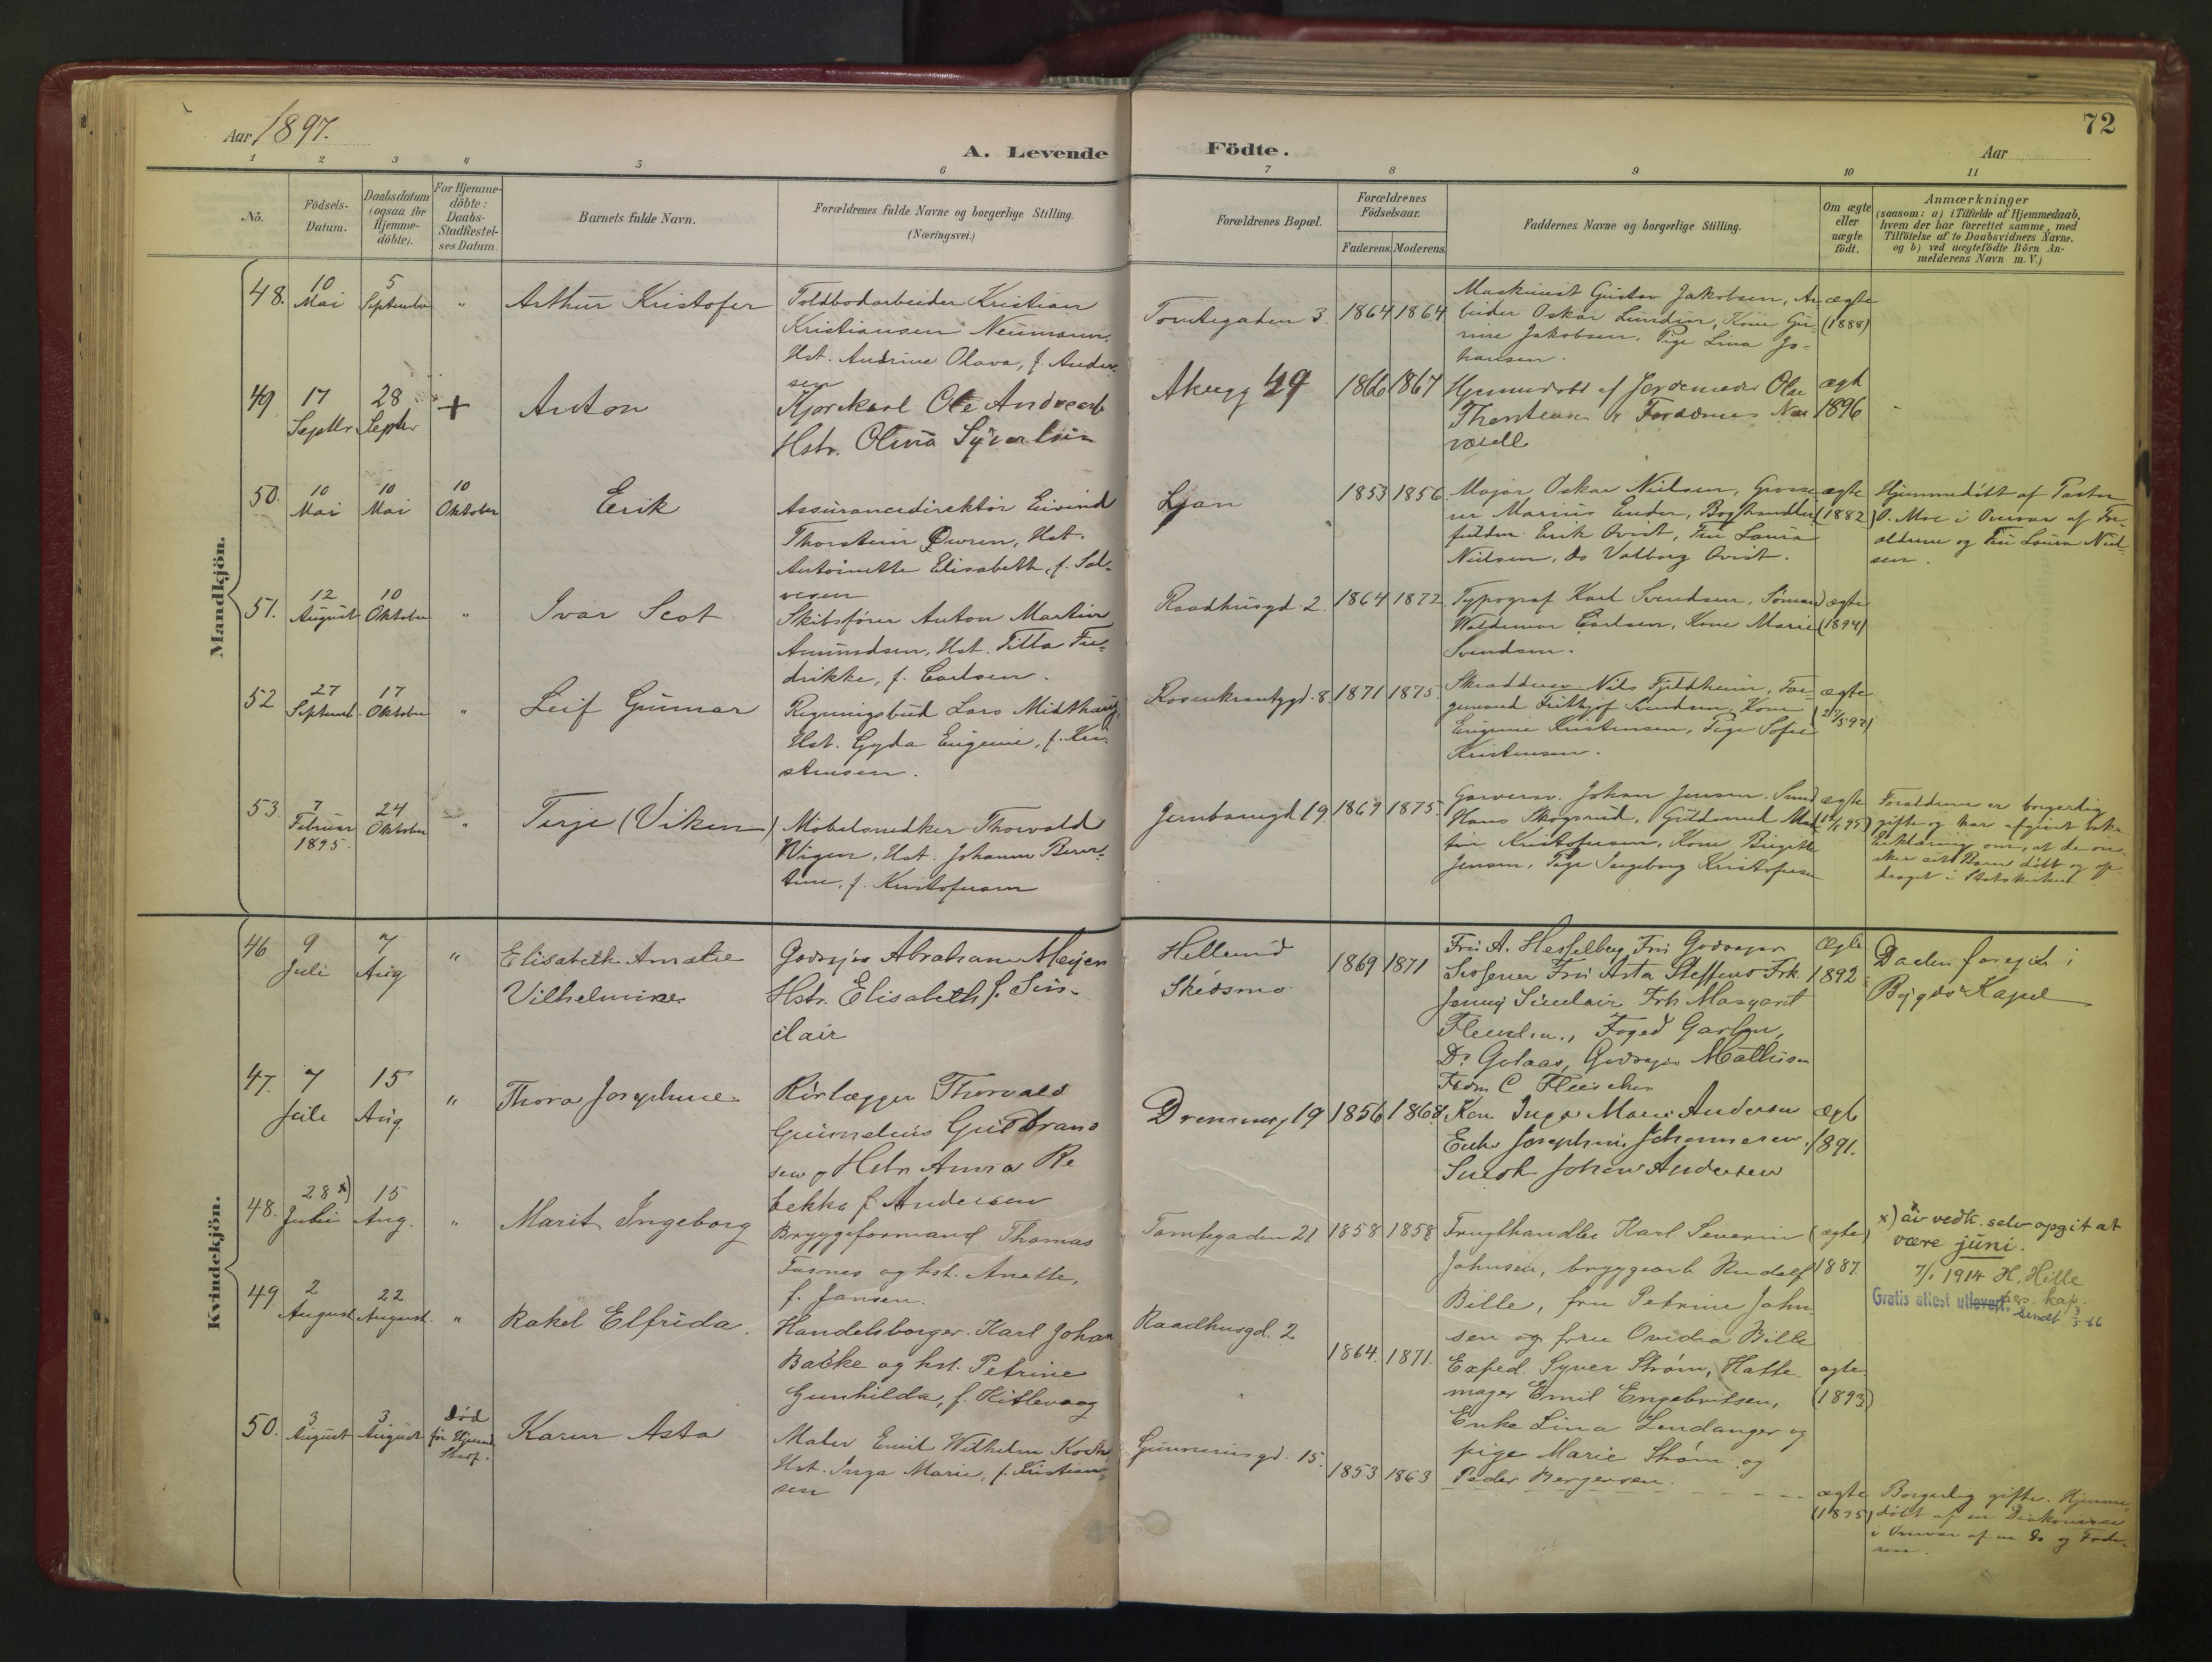 Aar 1897.
A. Levende Födte.
72
Aar
1 2 3 4 5 6 7 8 9 10 11
No.
Födsels-Datum.
Daabsdatum (ogsaa for Hjemme-döbte).
For Hjemme-döbte: Daabs-Stadfæstel-ses Datum.
Barnets fulde Navn.
Forældrenes fulde Navne og borgerlige Stilling.
(Næringsvei.)
Forældrenes Bopæl.
Forældrenes Födselsaar.
Faderens. Moderens.
Faddernes Navne og borgerlige Stilling.
Om ægte eller uægte født.
Anmærkninger
(saasom: a) i Tilfælde af Hjemmedaab,
hvem der har forrettet samme, med
Tilföielse af to Daabsvidners Navne,
og b) ved uægtefödte Börn An-
melderens Navn m. V.)
Mandkjön.
48. 10 Mai 5 September " Arthur Kristofer
Toldbodarbeider Kristian
Kristiansen Neumann,
Hst. Andrine Olava, f. Ander-
sen
Tomtegaden 3. 1864 1864
Maskinist Gustav Jakobsen, Ar-
beider Oskar Lundin, Kone Gu-
rine Jakobsen, Pige Lina Jo-
hansen.
ægte (1888)
49 17 Septbr 28 Septbr + Anton
Kjørekarl Ole Andreas
Hstr. Olivia Syvertsen
Akugg 49 1866 1867
Hjemmedøbt af Jordemoder
ægt 1896
50. 10 Mai 10 Mai 10 Oktober Erik
Assurancedirektør Eivind
Thorstein Owren, Hst.
Antoinette Elisabeth, f. Sal-
vesen
Ljan 1853 1856
Major Oskar Nielsen, Grosse-
rer Marius Ender, Boghandler-
fuldm. Erik Qvist, Fru Laura
Nielsen, do Valborg Qvist.
ægte (1882)
Hjemmedöbt af Pastor
O. Moe i Overvær af For-
ældrene og Fru Laura Niel-
sen.
51. 12 August 10 Oktober " Ivar Scot
Skibsfører Anton Martin
Amundsen, Hst. Titta Fre-
drikke, f. Carlsen.
Raadhusgd. 2. 1864 1872
Typograf Karl Svendsen, Sømand
Waldemar Carlsen, Kone Marie
Svendsen.
ægte (1894)
52 27 Septemb. 17 Oktober " Leif Gunnar
Regningsbud Lars Midthaug,
Hst. Gyda Eugenie, f. Kri-
stensen.
Rosenkrantzgd. 8. 1871 1875.
Skræddersv. Nils Fjeldheim, For-
gemand Frithjof Svendsen, Kone
Eugenie Kristensen, Pige Sofie
Kristensen.
ægte
53 7 Februar 1895. 24 Oktober " Terje (Viken)
Møbelsnedker Thorvald
Wigen, Hst. Johanne Bern-
tine, f. Kristofersen
Jernbanegd 19. 1869 1875.
Garversv. Johan Jensen, Smed
Hans Skogsrud, Guldsmed Mar-
tin Kristofersen, Kone Birgitte
Jensen, Pige Ingeborg Kristofersen
ægte
Forældrene er borgerlig
gifte og har afgivet
Erklæring om, at de øn-
sker sit Barn döbt og op-
draget i Statskirken.
Kvindekjön.
46 9 Juli 7 Aug " Elisabeth Amalie
Vilhelmine
Godsejer Abraham Meyer
Hstr. Elisabeth f. Sin-
clair
Hellerud
Skedsmo
1869 1871
Fru A. Hesselberg, Fru Godsejer
Fru Asta Steffens Frk.
Jenny Sinclair Frk Margaret
Foged
Godsejer Mathisen
Ægte 1892
Daaben foregik i
Bygdø Kapel
47. 7 Juli 15 Aug. " Thora Josephine
Rørlægger Thorvald
Gulbrand-
sen og Hstr Anna Re-
bekka f. Andersen
19 1856 1868
Kone Inga Marie Andersen
Enke Josephine Johannesen,
Smed Johan Andersen
Ægt 1891.
48. 28 x) Juli 15 Aug. " Marit Ingeborg
Bryggeformand Thomas
Fasnes og hst. Anette,
f. Jansen.
Tomtegaden 21 1858 1858
Frugthandler Karl Severin
Johnsen, bryggearb Rudolf
Bille, fru Petrine John-
sen og fru Ovidia Bille
(ægte) 1887.
x) av vedk. selv opgit at
være juni.
7/1 1914 H. Hille
pers. kap.
Gratis attest utlevert.
Sendt 3/3-66
49. 2 August 22 August. " Rakel Elfrida.
Handelsborger Karl Johan
Bakke og hst. Petrine
Gunhilda, f. Kitlevaag
Raadhusgd. 2
1864. 1871.
Exped. Syver Strøm, Hatte-
mager Emil Engebritsen,
Enke Lina Lendanger og
pige Marie Strøm og
Peder Bergersen.
ægte (1893)
50. 3 August 3 August Död før Hjemme Stadf. Karen Asta
Maler Emil Wilhelm Koch
Hst. Inga Marie, f. Kristian-
sen
Gunnerusgd. 15.
1853 1863
ægte (1895)
Borgerlig gifte. Hjemme-
döbt af en Diakonisse
i Overvær af en do og Fade-
ren.